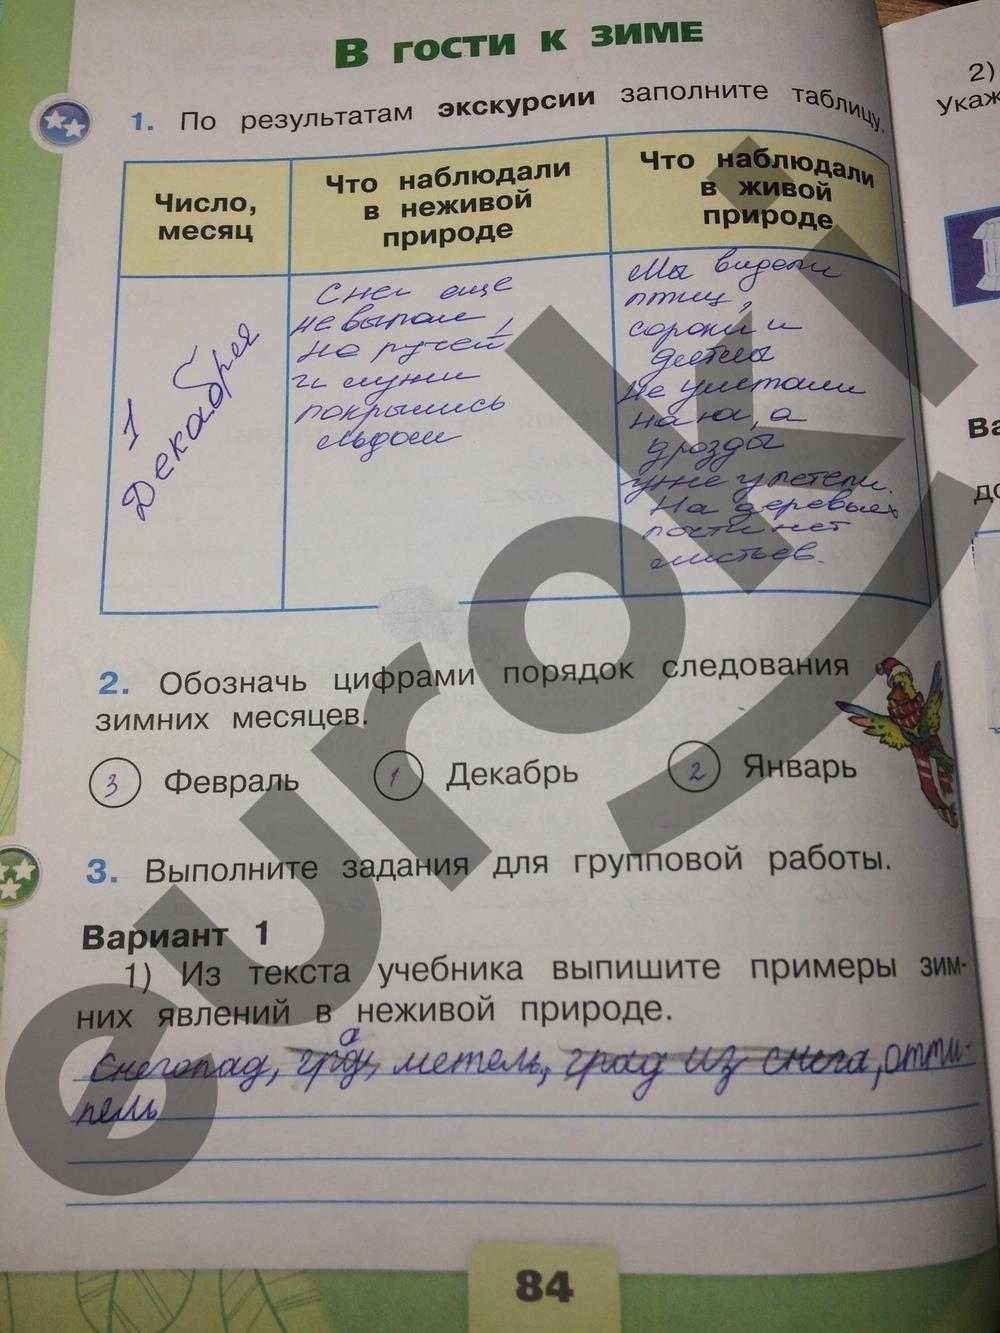 В ГОСТИ К ЗИМЕ
1. По результатам экскурсии заполните таблицу.
Число,
месяц
Что наблюдали
в неживой
природе
Что наблюдали
в живой
природе
1
Декабря
Снег еще
не выпал,
но ручей
и лужи
покрылись
льдом
Мы видели
птиц,
сороки и
дятлы
не улетали
на юг, а
дрозды
уже улетели.
На деревьях
почти нет
листьев.
2. Обозначь цифрами порядок следования
зимних месяцев.
3 Февраль 1 Декабрь 2 Январь
3. Выполните задания для групповой работы.
Вариант 1
1) Из текста учебника выпишите примеры зим-
них явлений в неживой природе.
Снегопад, град, метель, град из снега, отте-
пель
84
2)
Укаж
Ва
до
euroki